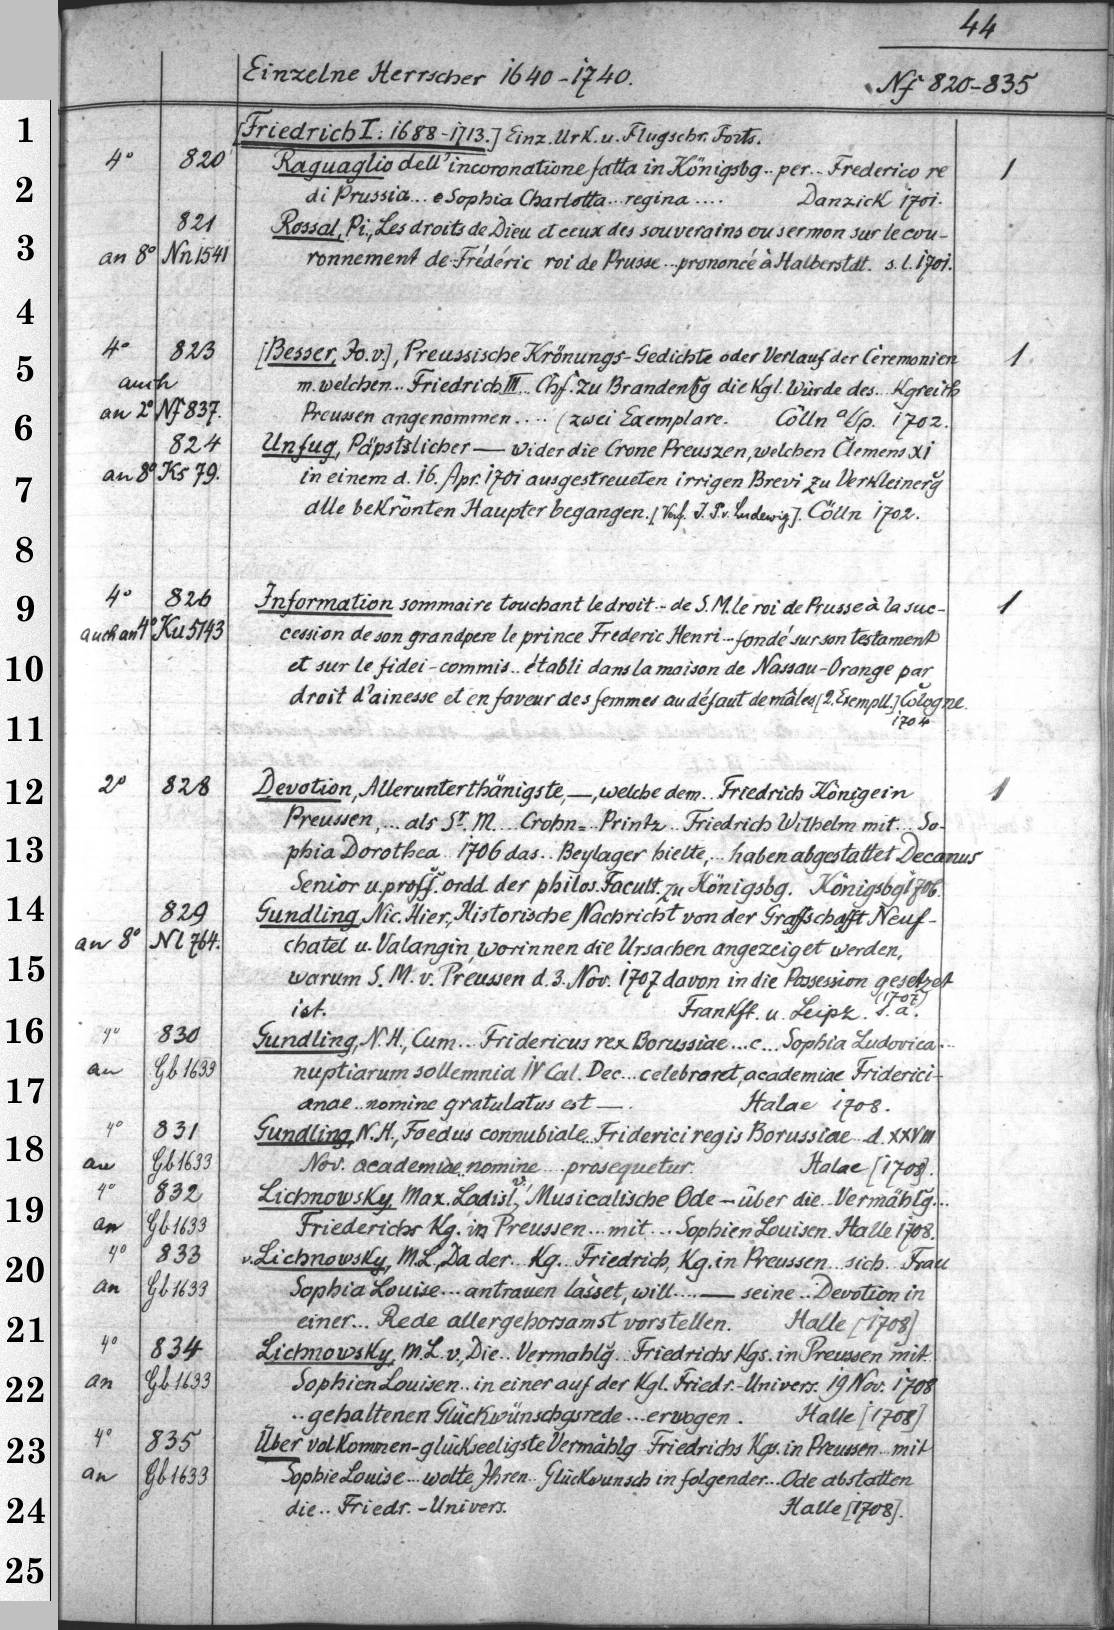 44
Einzelne Herrscher 1640-1740.
Nf 820-835
1
[Friedrich I: 1688-1713.] Einz. Urk. u. Flugschr. Forts.
4° 820 Raguaglio dell'incoronatione fatta in Königsbg .. per .. Frederico re 1
2
di Prussia... e Sophia Charlotta ... regina .... Danzick 1701.
821 Rossal, Pi., Les droits de Dieu et ceux des souverains ou sermon sur le cou-
3
an 8° Nn 1541 ronnement de Frédéric roi de Prusse .. prononcé à Halberstdt. s. l. 1701.
4
4° 823 [Besser, Jo. v.], Preussische Krönungs-Gedichte oder Verlauf der Ceremonien 1
5
auch m. welchen .. Friedrich III... Chf. zu Brandenbg die Kgl. Würde des .. Kgreichs
an 2° Nf 837. Preussen angenommen .... (zwei Exemplare. Cölln a/Sp. 1702.
6
824 Unfug, Päpstslicher — wider die Crone Preuszen, welchen Clemens XI
an 8° Ks 79. in einem d. 16. Apr. 1701 ausgestreueten irrigen Brevi zu Verkleinerg
7
alle bekrönten Haupter begangen. [Verf. J. P. v. Ludewig]. Cölln 1702.
8
4° 826 Information sommaire touchant le droit .. de S. M. le roi de Prusse à la suc- 1
9
auch an 4° Ku 5143 cession de son grandpere le prince Frederic Henri .. fondé sur son testament
10
et sur le fidei-commis .. établi dans la maison de Nassau-Orange par
droit d'ainesse et en faveur des femmes au défaut de mâles [2. Exempll.] Cologne
1704
11
2° 828 Devotion, Allerunterthänigste, —, welche dem .. Friedrich Könige in 1
12
Preussen, ... als Sr. M. .... Crohn= Printz .. Friedrich Wilhelm mit ... So-
13
phia Dorothea 1706 das .. Beylager hielte, .. haben abgestattet Decanus
Senior u. proff. ordd. der philos. Facult. zu Königsbg. Königsbg 1706.
14
829 Gundling, Nic. Hier., Historische Nachricht von der Graffschafft Neuf-
an 8° Nl 764. chatel u. Valangin, worinnen die Ursachen angezeiget werden,
15
warum S. M. v. Preussen d. 3. Nov. 1707 davon in die Possession gesetzet
ist. Frankft. u. Leipz. s. a. (1707)
16
4° 830 Gundling, N. H., Cum .. Fridericus rex Borussiae ... c... Sophia Ludovica ...
an Gb 1633 nuptiarum sollemnia IV Cal. Dec... celebraret, academiae Friderici-
17
anae .. nomine gratulatus est —. Halae 1708.
4° 831 Gundling, N. H., Foedus connubiale .. Friderici regis Borussiae .. d. XXVIII
18
an Gb 1633 Nov. academiae nomine .... prosequetur. Halae [1708].
4° 832 Lichnowsky, Max. Ladisl. v., Musicalische Ode — über die .. Vermählg...
19
an Gb 1633 Friederichs Kg. in Preussen ... mit ... Sophien Louisen. Halle 1708.
4° 833 v. Lichnowsky, M. L., Da der .. Kg. .. Friedrich, Kg. in Preussen .. sich .. Frau
20
an Gb 1633 Sophia Louise ... antrauen lässet, will .... — seine .. Devotion in
21
einer ... Rede allergehorsamst vorstellen. Halle [1708]
4° 834 Lichnowsky, M. L. v., Die .. Vermahlg .. Friedrichs Kgs. in Preussen mit
22
an Gb 1633 Sophien Louisen .. in einer auf der Kgl. Friedr.-Univers. 19 Nov. 1708
.. gehaltenen Glückwünschgsrede ... erwogen. Halle [1708]
23
4° 835 Über volkommen-glückseeligste Vermählg Friedrichs Kgs. in Preussen .. mit
an Gb 1633 Sophie Louise ... wolte Ihren .. Glückwunsch in folgender ... Ode abstatten
24
die .. Friedr.-Univers. Halle [1708].
25